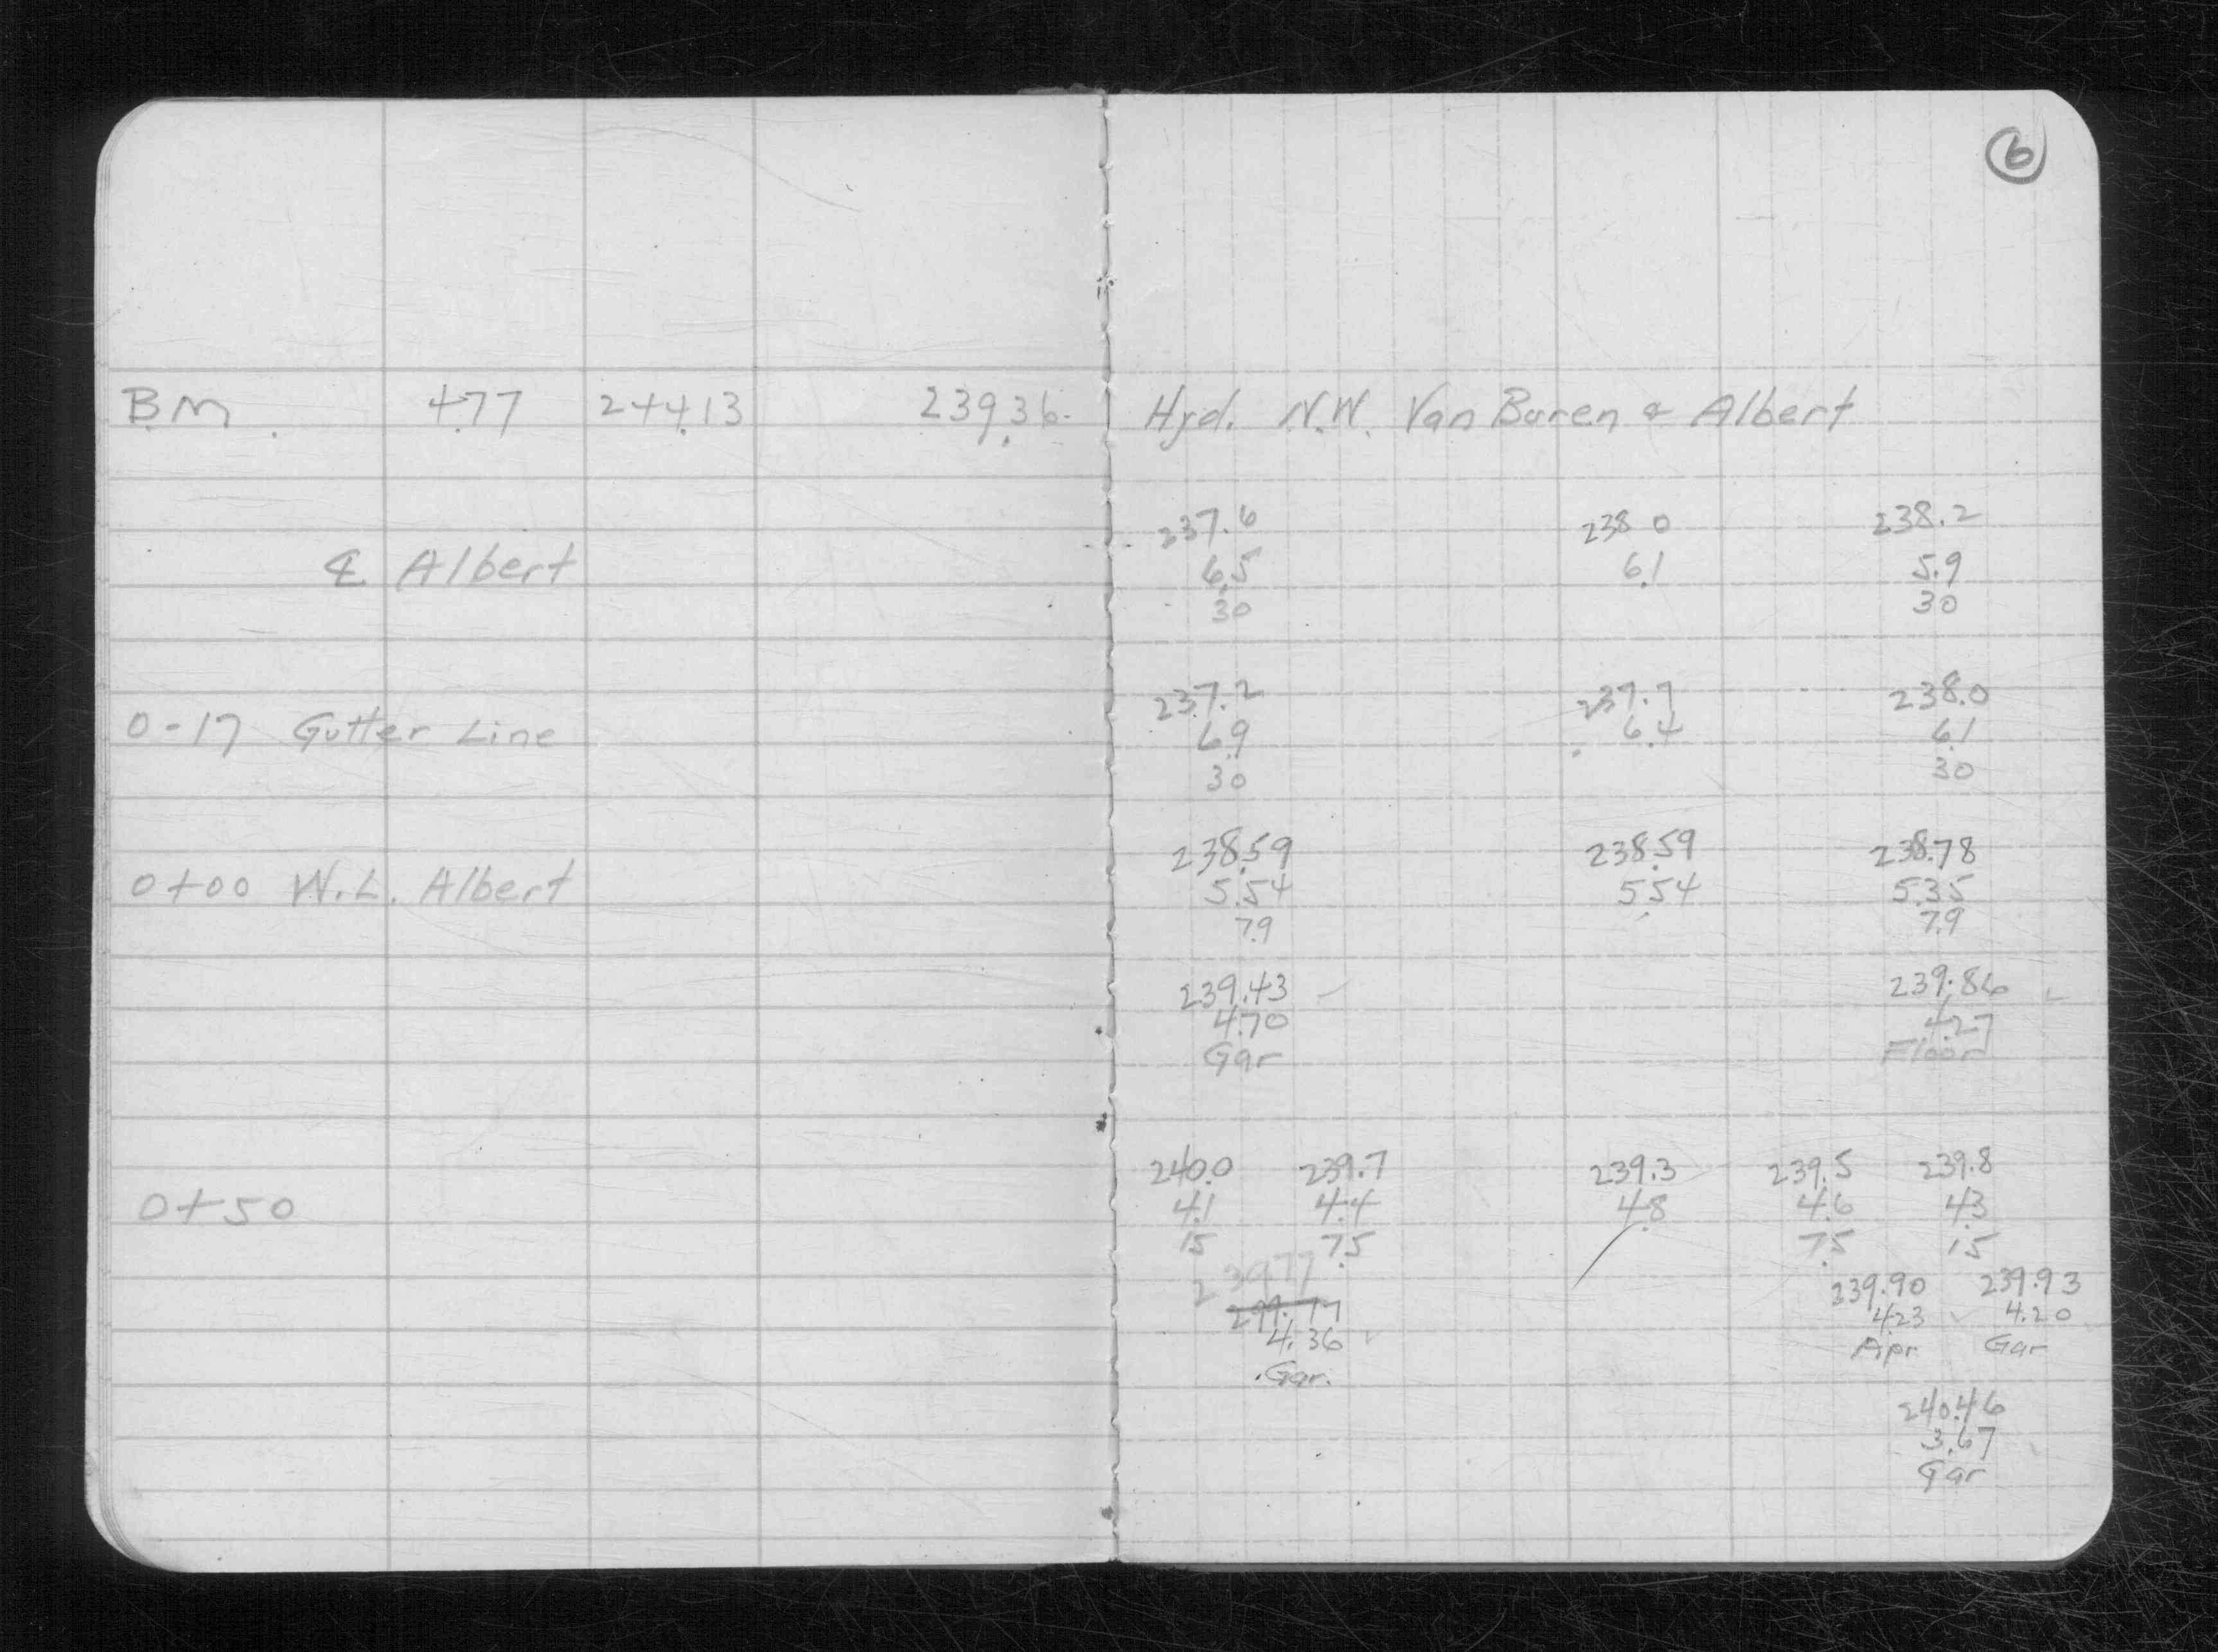 6
B.M. 4.77 244.13 239.36 Hyd. N.W. Van Buren & Albert
237.6 238.0 238.2
℄ Albert 6.5 6.1 5.9
30 30
237.2 237.7 238.0
0-17 Gutter Line 6.9 6.4 6.1
30 30
238.59 238.59 238.78
0+00 W.L. Albert 5.54 5.54 5.35
7.9 7.9
239.43 239.86
4.70 4.27
Gar Floor
240.0 239.7 239.3 239.5 239.8
0+50 4.1 4.4 4.8 4.6 4.3
15 7.5 7.5 15
239.77 239.90 239.93
4.36 4.23 4.20
Gar. Apr Gar
240.46
3.67
Gar